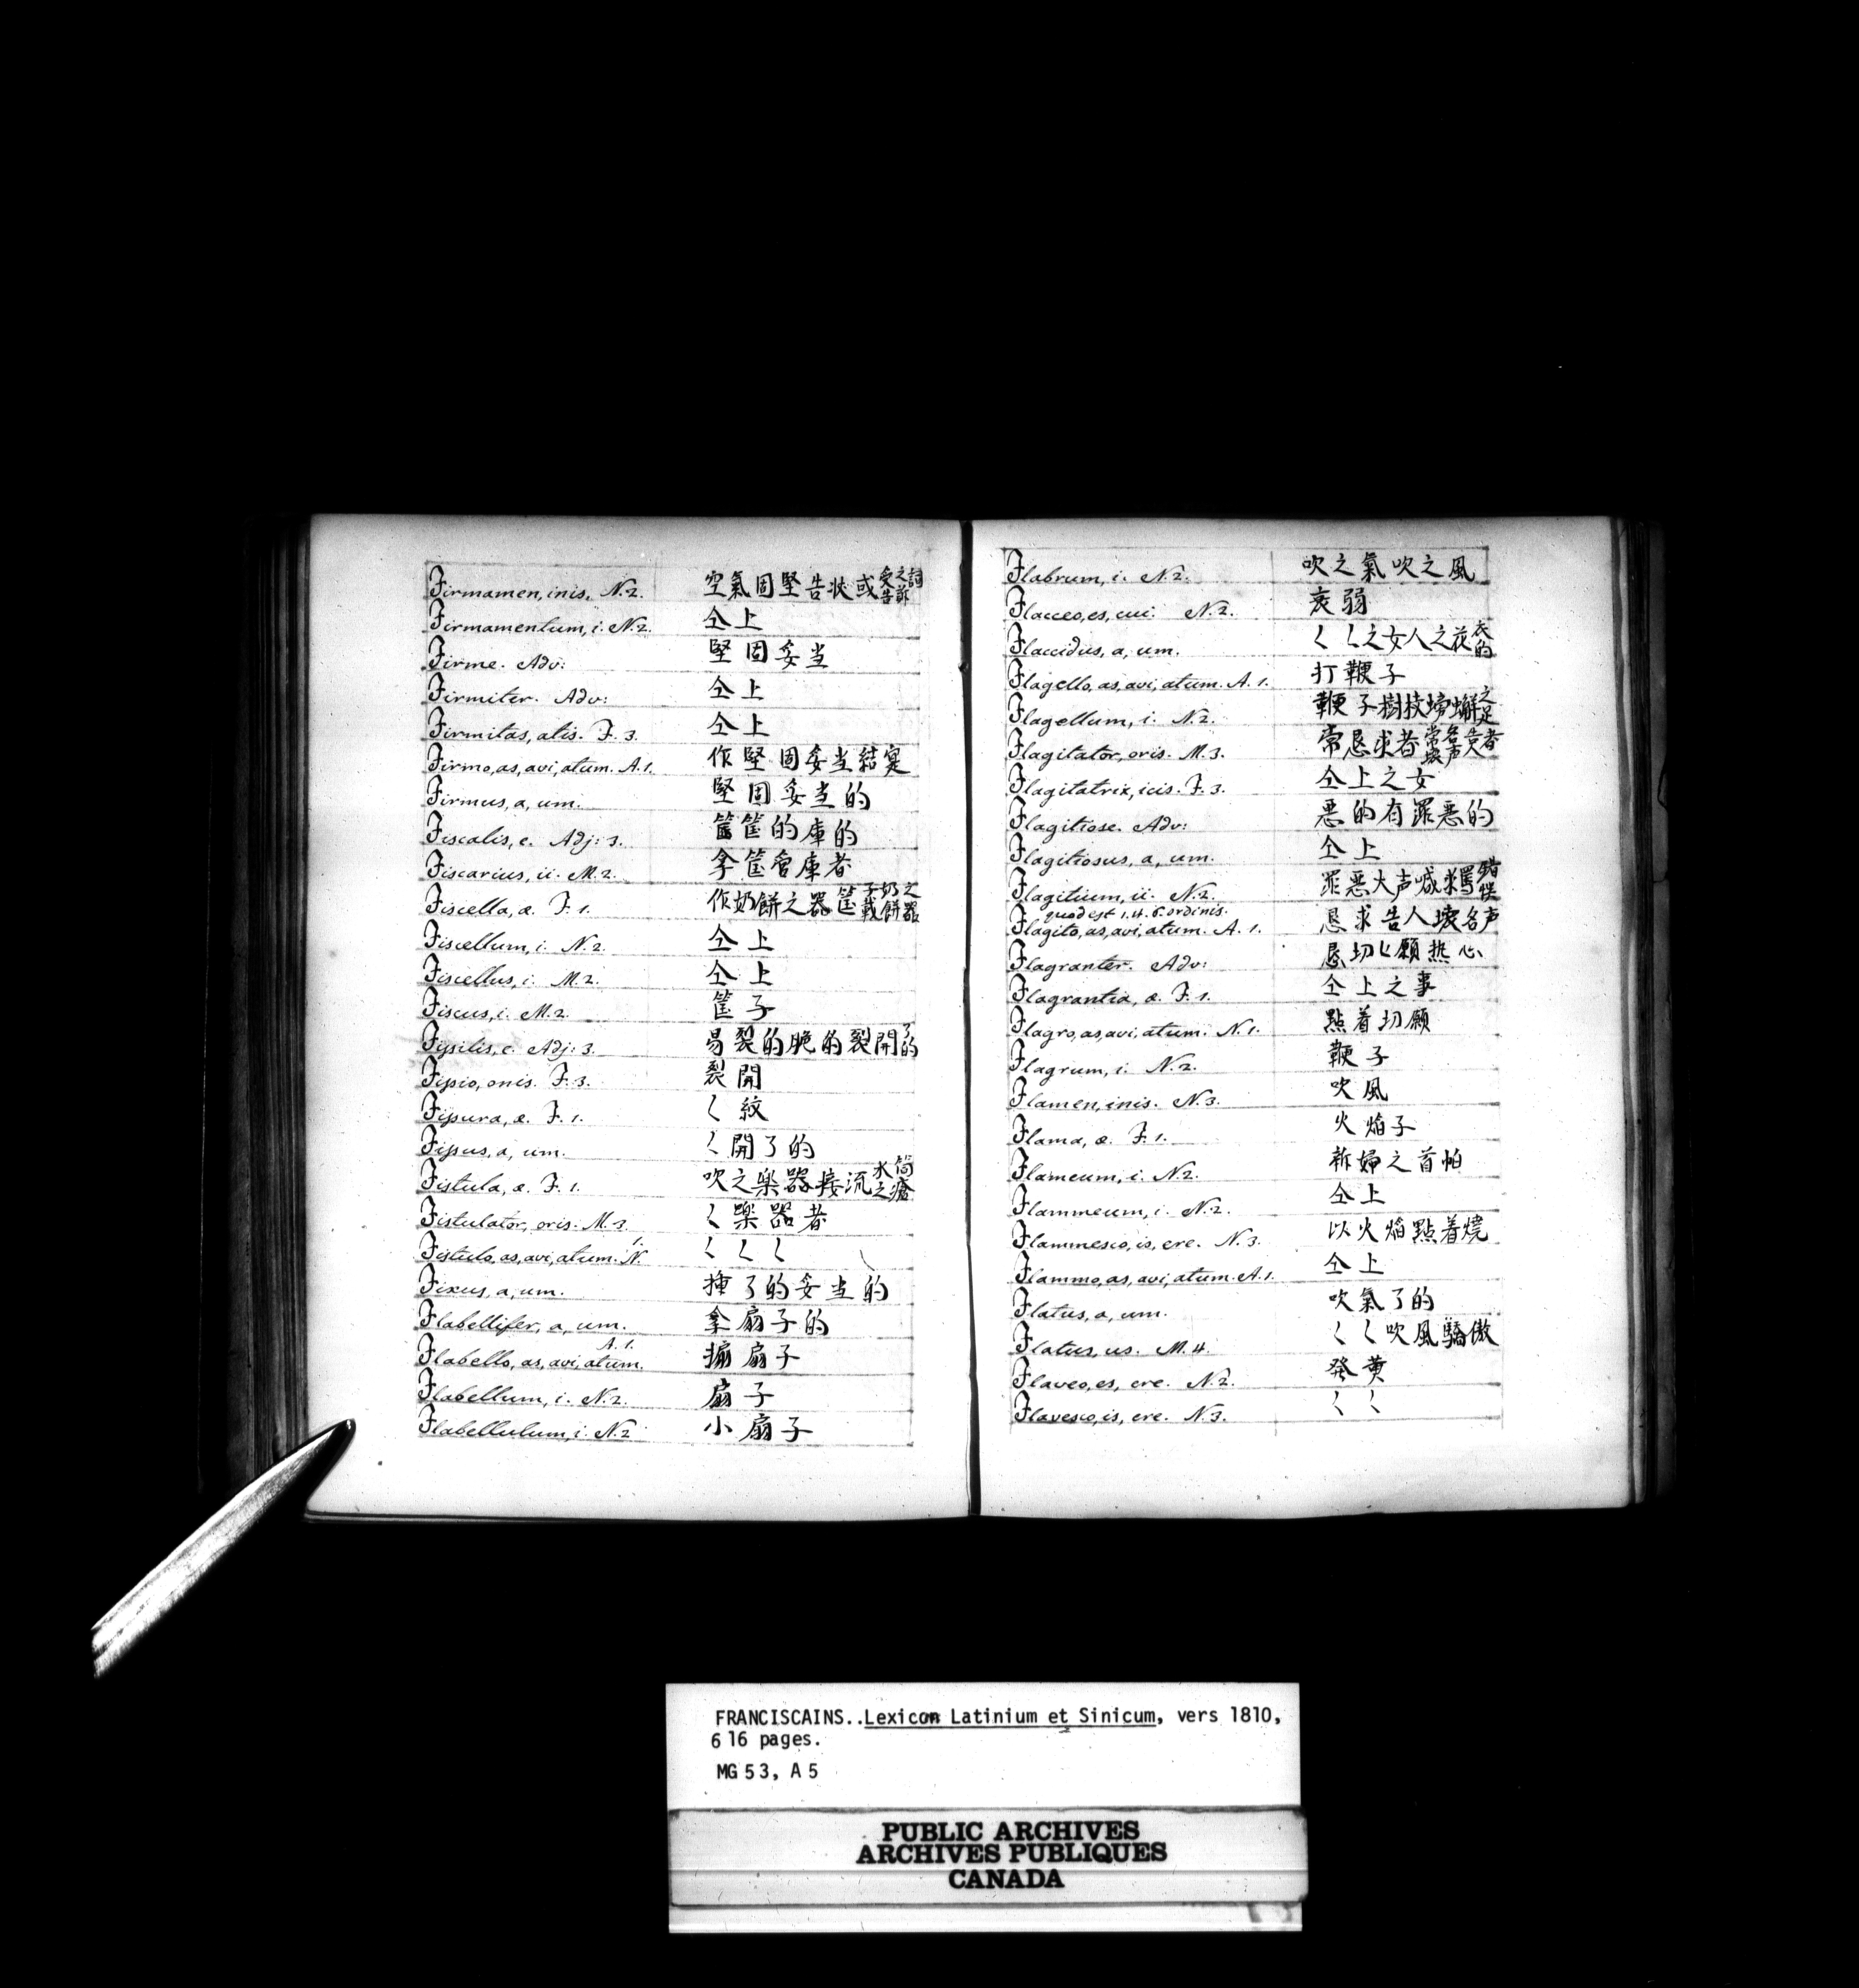 Firmamen, inis. N. 2. 空氣固堅告状或受告之訴詞
Firmamentum, i. N. 2. 仝上
Firme. Adv: 堅固妥当
Firmiter. Adv: 仝上
Firmitas, atis. F. 3. 仝上
Firmo, as, avi, atum. A. 1. 作堅固妥当結寔
Firmus, a, um. 堅固妥当的
Fiscalis, e. Adj: 3. 筐的庫的
Fiscarius, ii. M. 2. 拿筐倉庫者
Fiscella, æ. F. 1. 作奶餅之器筐子載奶餅之器
Fiscellum, i. N. 2. 仝上
Fiscellus, i. M. 2. 仝上
Fiscus, i. M. 2. 筐子
Fißilis, e. Adj: 3. 易裂的脆的裂開了的
Fißio, onis. F. 3. 裂開
Fißura, æ. F. 1. 〱紋
Fißus, a, um. 〱開了的
Fistula, æ. F. 1. 吹之楽器接流水之筒瘡
Fistulator, oris. M. 3. 〱楽器者
Fistulo, as, avi, atum. N. 1. 〱〱〱
Fixus, a, um. 了的妥当的
Flabellifer, a, um. 拿扇子的
Flabello, as, avi, atum. A. 1. 搧扇子
Flabellum, i. N. 2. 扇子
Flabellulum, i. N. 2 小扇子
Flabrum, i. N. 2. 吹之氣吹之風
Flacceo, es, cui. N. 2. 衰弱
Flaccidus, a, um. 〱〱之女人之花衣的
Flagello, as, avi, atum. A. 1. 打鞭子
Flagellum, i. N. 2. 鞭子樹枝螃蠏之足
Flagitator, oris. M. 3. 常恳求者常壞名声告人者
Flagitatrix, icis. F. 3. 仝上之女
Flagitiose. Adv: 悪的有罪悪的
Flagitiosus, a, um. 仝上
Flagitium, ii. N. 2. 罪悪大声喊求罵錯悞
quod est 1. 4. 6. ordinis.
Flagito, as, avi, atum. A. 1. 恳求告人壞名声
Flagranter. Adv: 恳切心願热心
Flagrantia, æ. F. 1. 仝上之事
Flagro, as, avi, atum. N. 1. 點着切願
Flagrum, i. N. 2. 鞭子
Flamen, inis. N. 3. 吹風
Flama, æ. F. 1. 火焰子
Flameum, i. N. 2. 新婦之首帕
Flammeum, i. N. 2. 仝上
Flammesco, is, ere. N. 3. 以火焰點着燒
Flammo, as, avi, atum. A. 1. 仝上
Flatus, a, um. 吹氣了的
Flatus, us. M. 4. 〱〱吹風驕傲
Flaveo, es, ere. N. 2. 發黄
Flavesco, is, ere. N. 3. 〱〱
FRANCISCAINS..Lexicon Latinium et Sinicum, vers 1810,
616 pages.
MG 53, A 5
PUBLIC ARCHIVES
ARCHIVES PUBLIQUES
CANADA